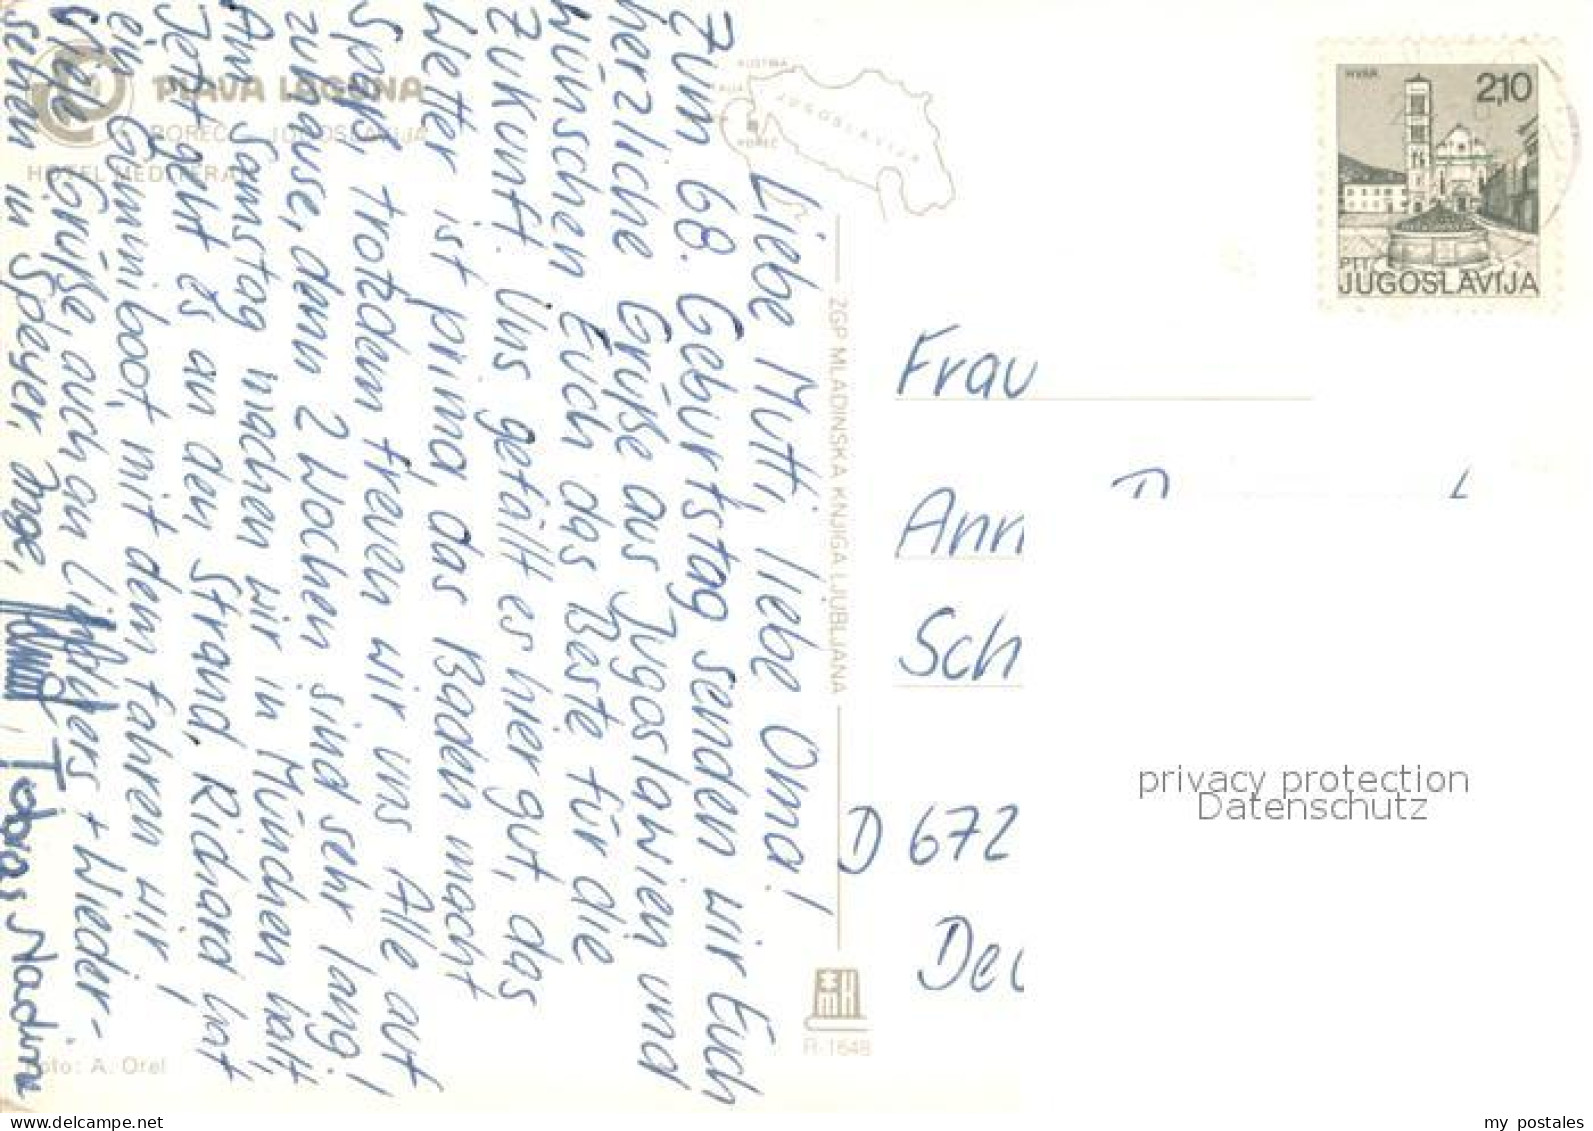 PLAVA LAGUNA
POREČ - JUGOSLAVIJA
HOTEL MEDITERAN
Liebe Mutti, liebe Oma!
Zum 68. Geburtstag senden wir Euch
herzliche Grüße aus Jugoslawien und
wünschen Euch das Beste für die
Zukunft. Uns gefällt es hier gut, das
Wetter ist prima, das Baden macht
Spaß, trotzdem freuen wir uns Alle auf
zuhause, denn 2 Wochen sind sehr lang!
Am Samstag machen wir in München halt,
Jetzt geht es an den Strand, Richard hat
ein Gummiboot, mit dem fahren wir!
Viele Grüße auch an + Wieder-
sehen in Speyer, Inge,
Tobias Nadine
Foto: A. Orel
AUSTRIA
JUGOSLAVIJA
POREČ
ZGP MLADINSKA KNJIGA LJUBLJANA
R-1648
HVAR
2,10
PTT
JUGOSLAVIJA
Frau
Ann
Sch
D 672
Deu
privacy protection
Datenschutz
my postales